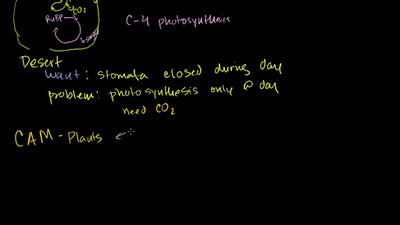 CO₂
RuBP
C-4 photosynthesis
Desert
want: stomata closed during day
problem: photosynthesis only @ day
need CO₂
CAM - Plants